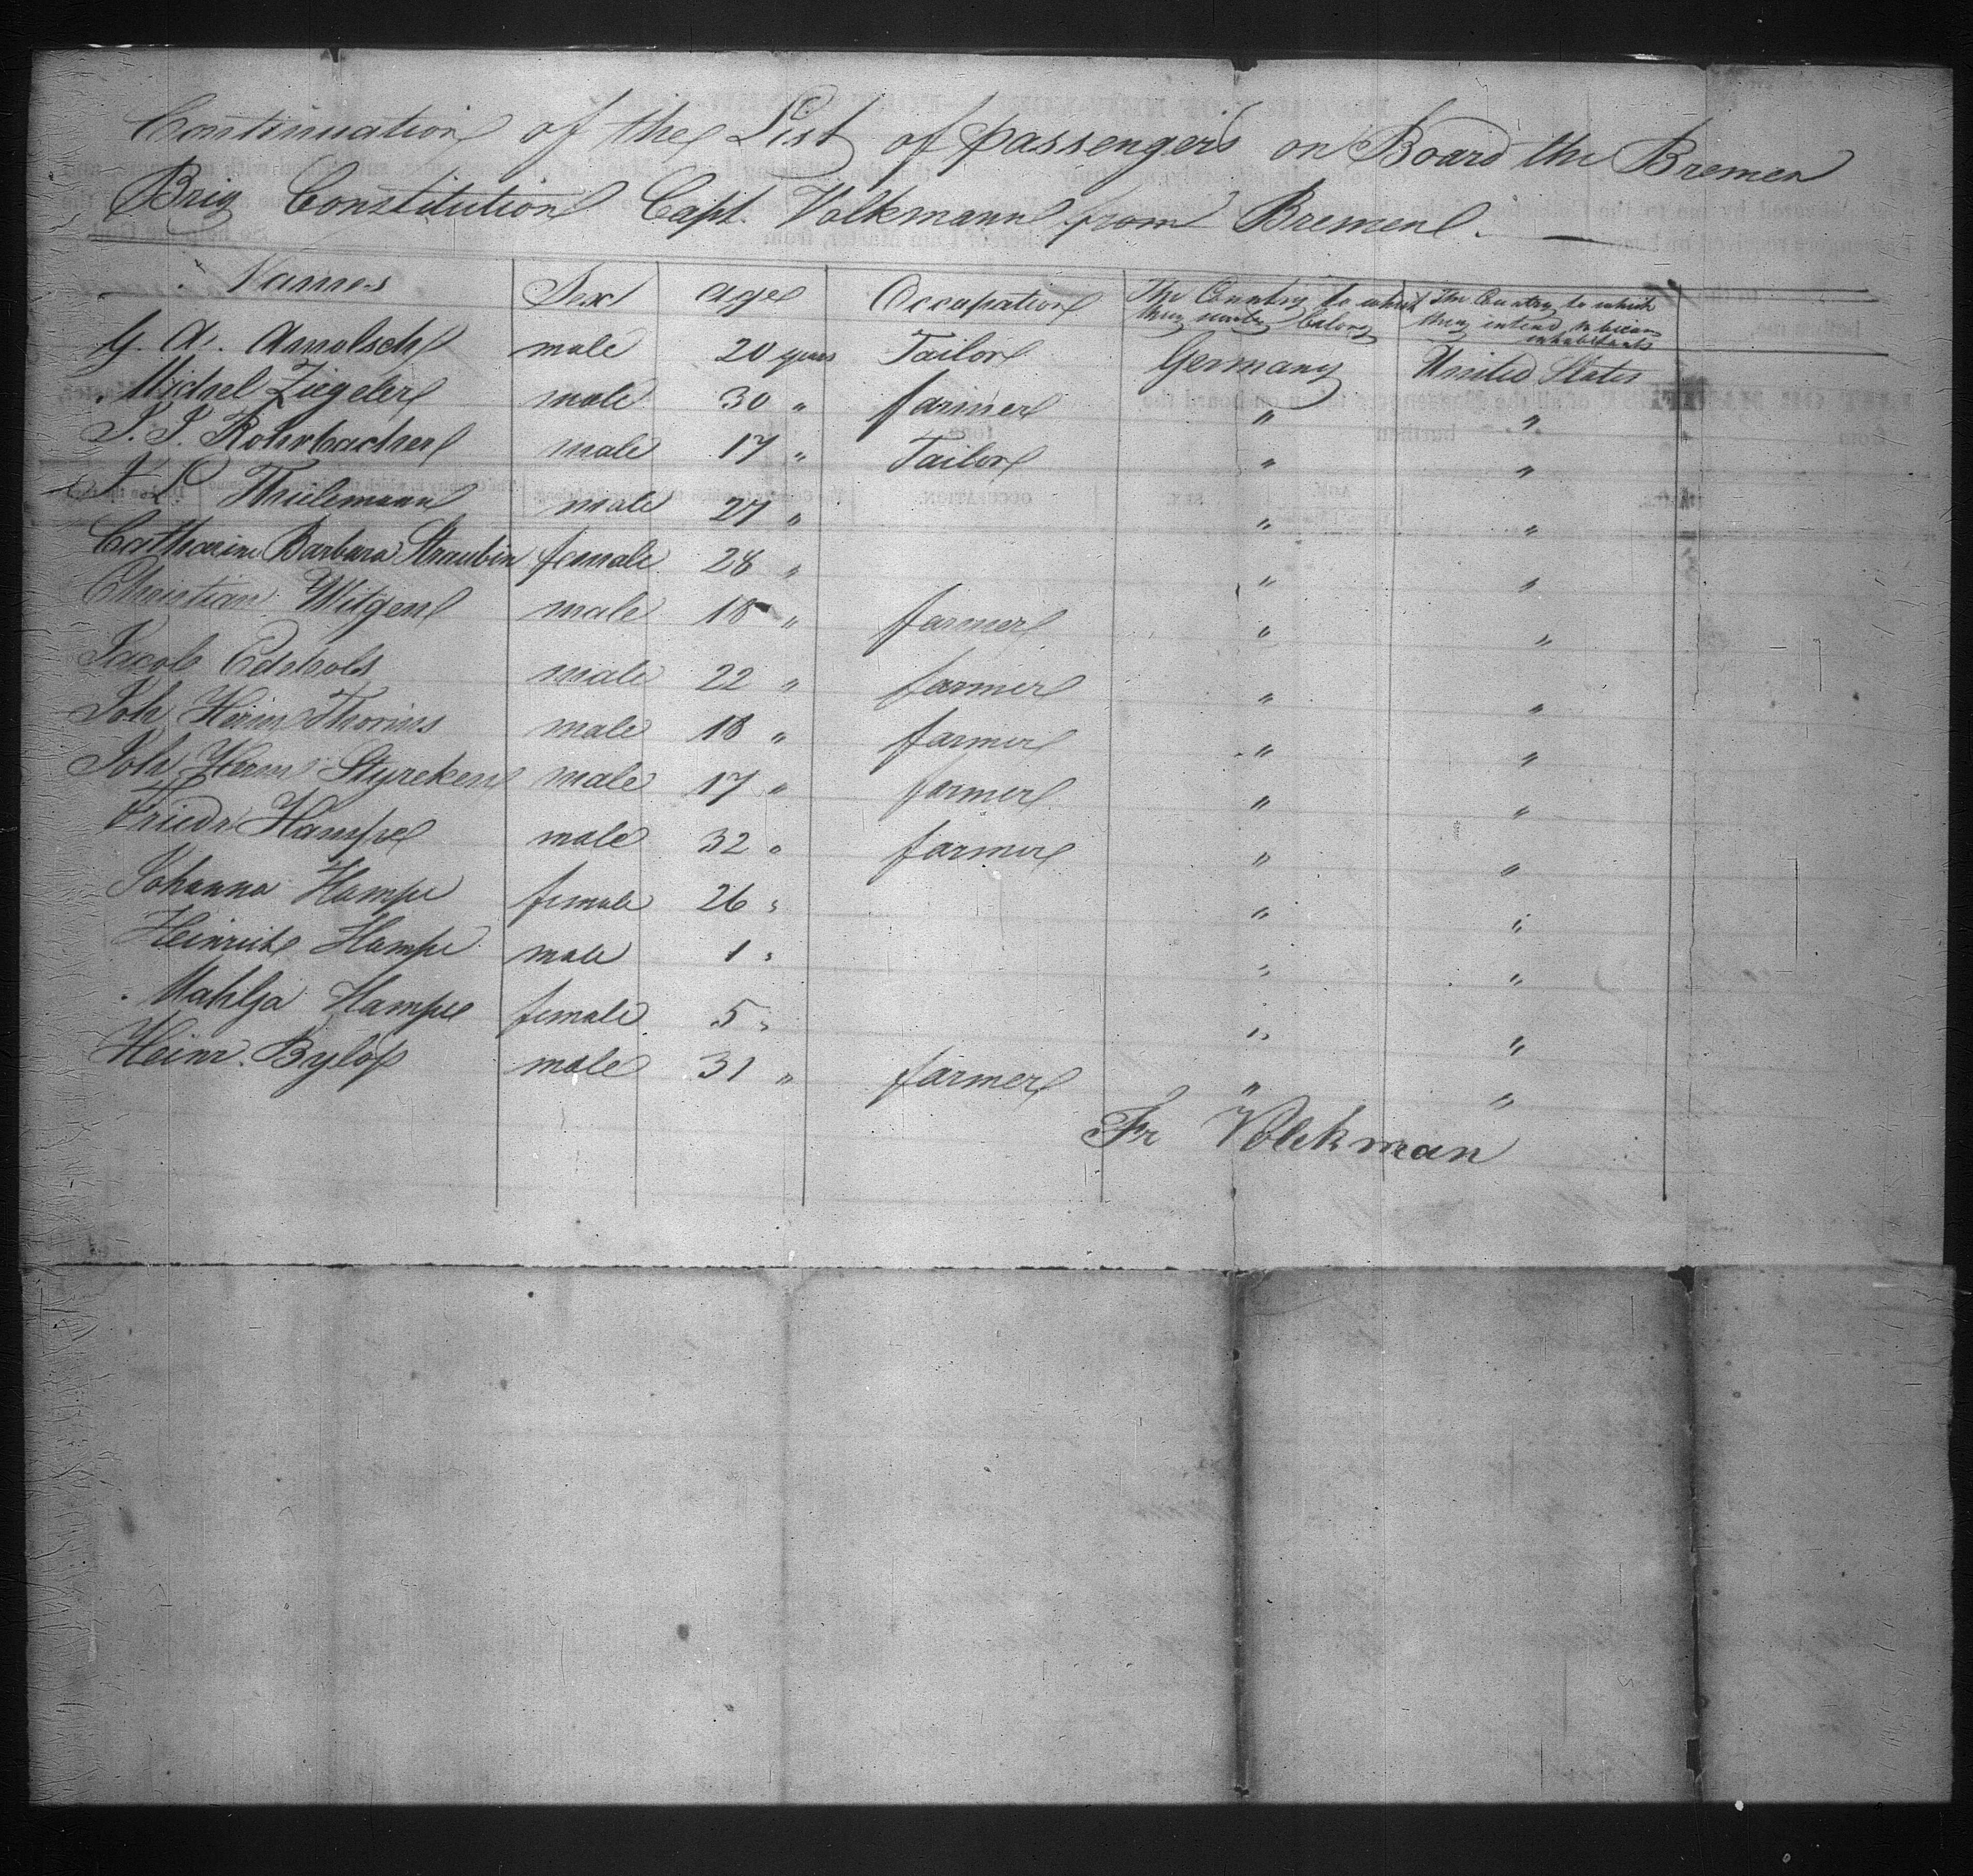 Continuation of the List of passengers on Board the Bremen
Brig Constitution Capt. Volkmann from Bremen.
Names Sex age Occupation The Country to which they severly belong The Country to which they intend to become inhabitants
G. A. Arnolsch male 20 years Tailor Germany United States
Michael Ziegeler male 30 " farmer " "
J. J. Rohrbacher male 17 " Tailor " "
Thielemann male 27 " " "
Catharine Barbara Straubin female 28 " " "
Christian Witgen male 18 " farmer " "
Jacob Edehols male 22 " farmer " "
Joh Heinr Thorius male 18 " farmer " "
Joh Herm Styreken male 17 " farmer " "
Friedr Hampe male 32 " farmer " "
Johanna Hampe female 26 " " "
Heinrich Hampe male 1 " " "
Hampe female 5 " " "
Heinr. Bylop male 31 " farmer " "
Fr Volckman